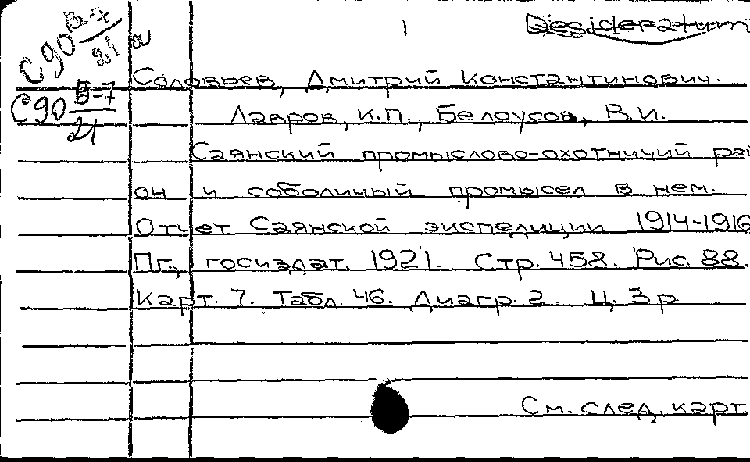 1 Desideratum
С90 В-7/21 а
С90 В-7/21
Соловьев, Дмитрий Константинович.
Лавров, К.П., Белоусов, В.И.
Саянский промыслово-охотничий рай
он и соболиный промысел в нем.
Отчет Саянской экспедиции 1914-1916
Пг, госиздат. 1921. Стр. 458. Рис. 88.
Карт. 7. Табл. 46. Диагр. 2. Ц. 3 р
См. след. карт